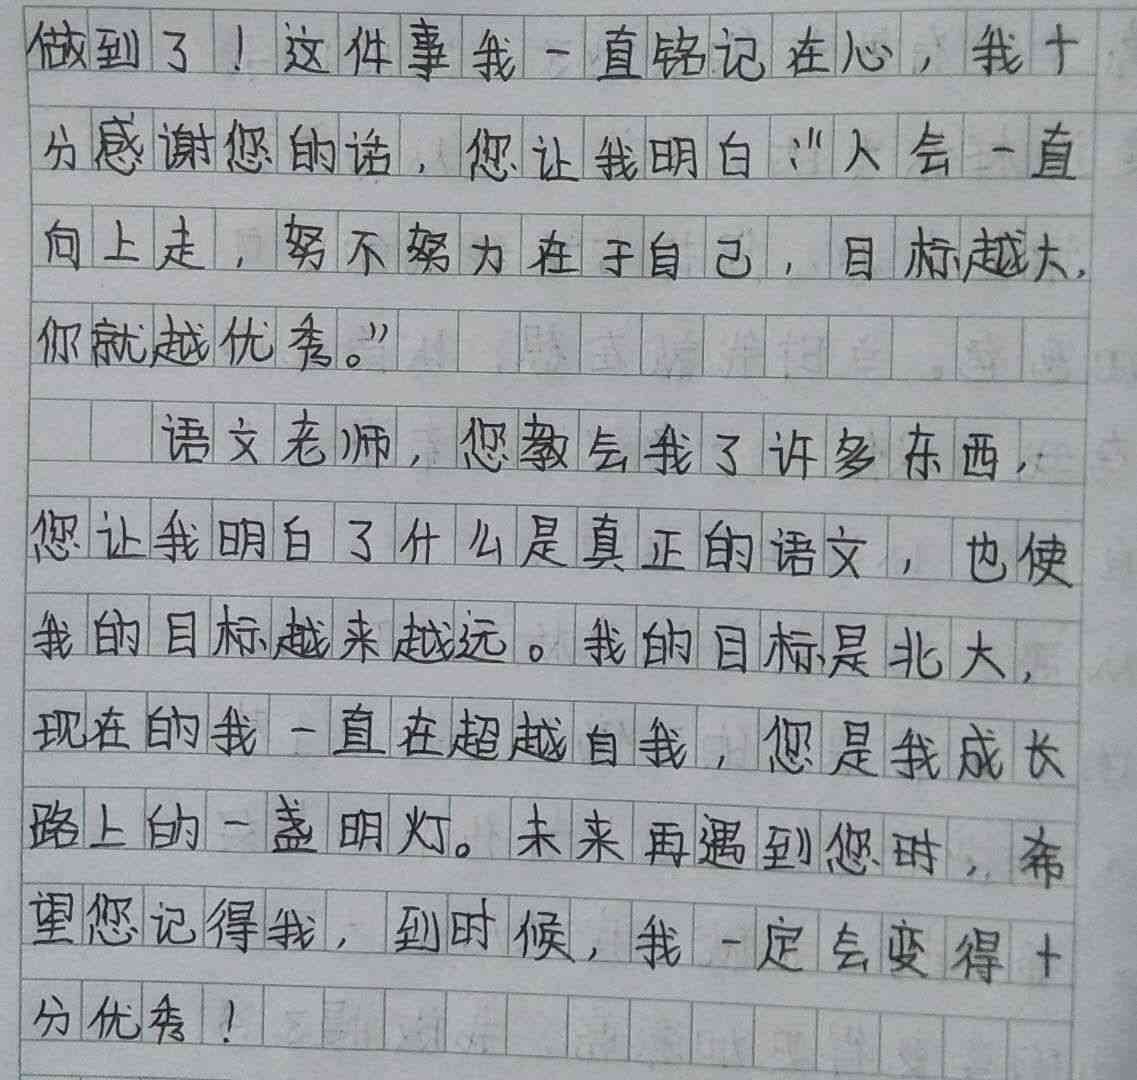 做到了！这件事我一直铭记在心，我十
分感谢您的话，您让我明白：“人会一直
向上走，努不努力在于自己，目标越大，
你就越优秀。”
语文老师，您教会我了许多东西，
您让我明白了什么是真正的语文，也使
我的目标越来越远。我的目标是北大，
现在的我一直在超越自我，您是我成长
路上的一盏明灯。未来再遇到您时，希
望您记得我，到时候，我一定会变得十
分优秀！